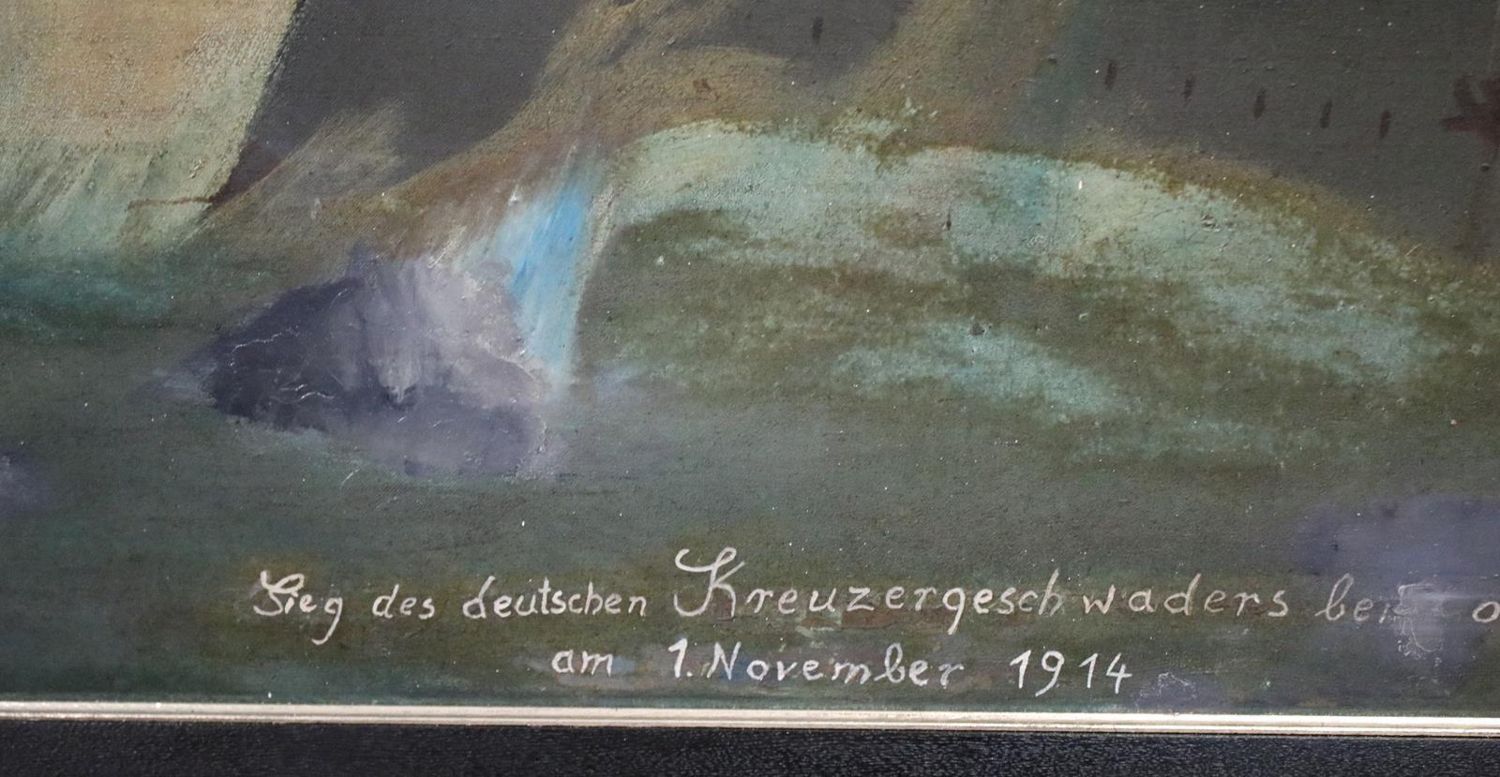 Sieg des deutschen Kreuzergeschwaders bei
am 1. November 1914